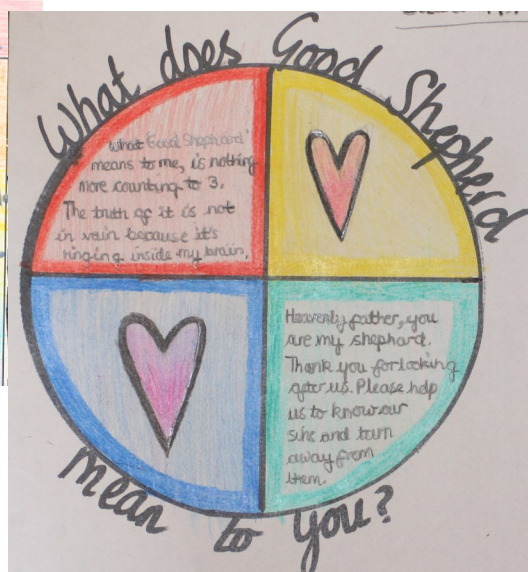 What does Good Shepherd
What Good Shephard
means to me, is nothing
more counting to 3.
The truth of it is not
in vain because it's
ringing inside my brain.
Heavenly father, you
are my shephard.
Thank you for looking
after us. Please help
us to know our
sins and turn
away from
them.
mean to you?